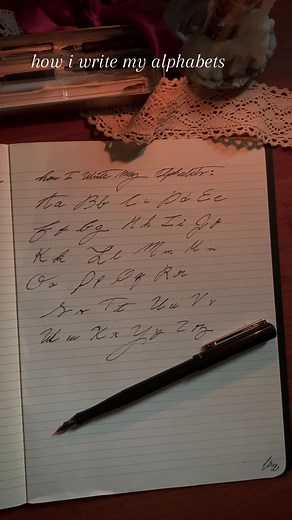 how i write my alphabets
how I write my alphabets:
Aa Bb Cc Dd Ee
Ff Gg Hh Ii Jj
Kk Ll Mm Nn
Oo Pp Qq Rr
Ss Tt Uu Vv
Ww Xx Yy Zz